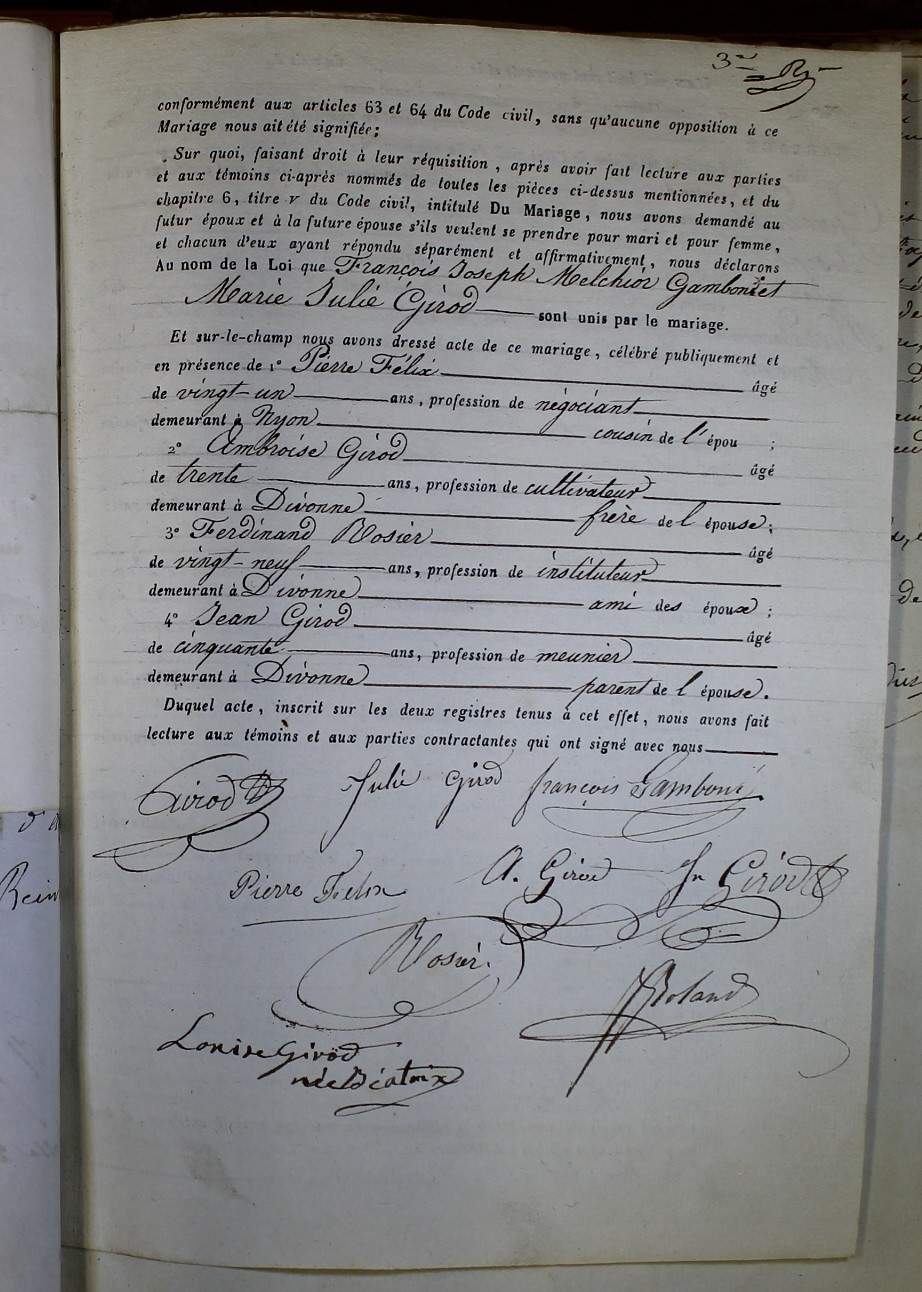 3e
conformément aux articles 63 et 64 du Code civil, sans qu'aucune opposition à ce
Mariage nous ait été signifiée;
Sur quoi, faisant droit à leur réquisition, après avoir fait lecture aux parties
et aux témoins ci-après nommés de toutes les pièces ci-dessus mentionnées, et du
chapitre 6, titre v du Code civil, intitulé Du Mariage, nous avons demandé au
futur époux et à la future épouse s'ils veulent se prendre pour mari et pour femme,
et chacun d'eux ayant répondu séparément et affirmativement, nous déclarons
Au nom de la Loi que François Joseph Melchior Gamboni et
Marie Julie Girod sont unis par le mariage.
Et sur-le-champ nous avons dressé acte de ce mariage, célébré publiquement et
en présence de 1° Pierre Félix âgé
de vingt-un ans, profession de négociant
demeurant à Nyon cousin de l'épou ;
2° Ambroise Girod âgé
de trente ans, profession de cultivateur
demeurant à Divonne frère de l'épouse;
3° Ferdinand Rosier âgé
de vingt-neuf ans, profession de instituteur
demeurant à Divonne ami des époux;
4° Jean Girod âgé
de cinquante ans, profession de meunier
demeurant à Divonne parent de l'épouse.
Duquel acte, inscrit sur les deux registres tenus à cet effet, nous avons fait
lecture aux témoins et aux parties contractantes qui ont signé avec nous
Girod Julie Girod françois Gamboni
Pierre Felix A. Girod Jn Girod
Rosier.
Roland
Louise Girod
née Béatrix